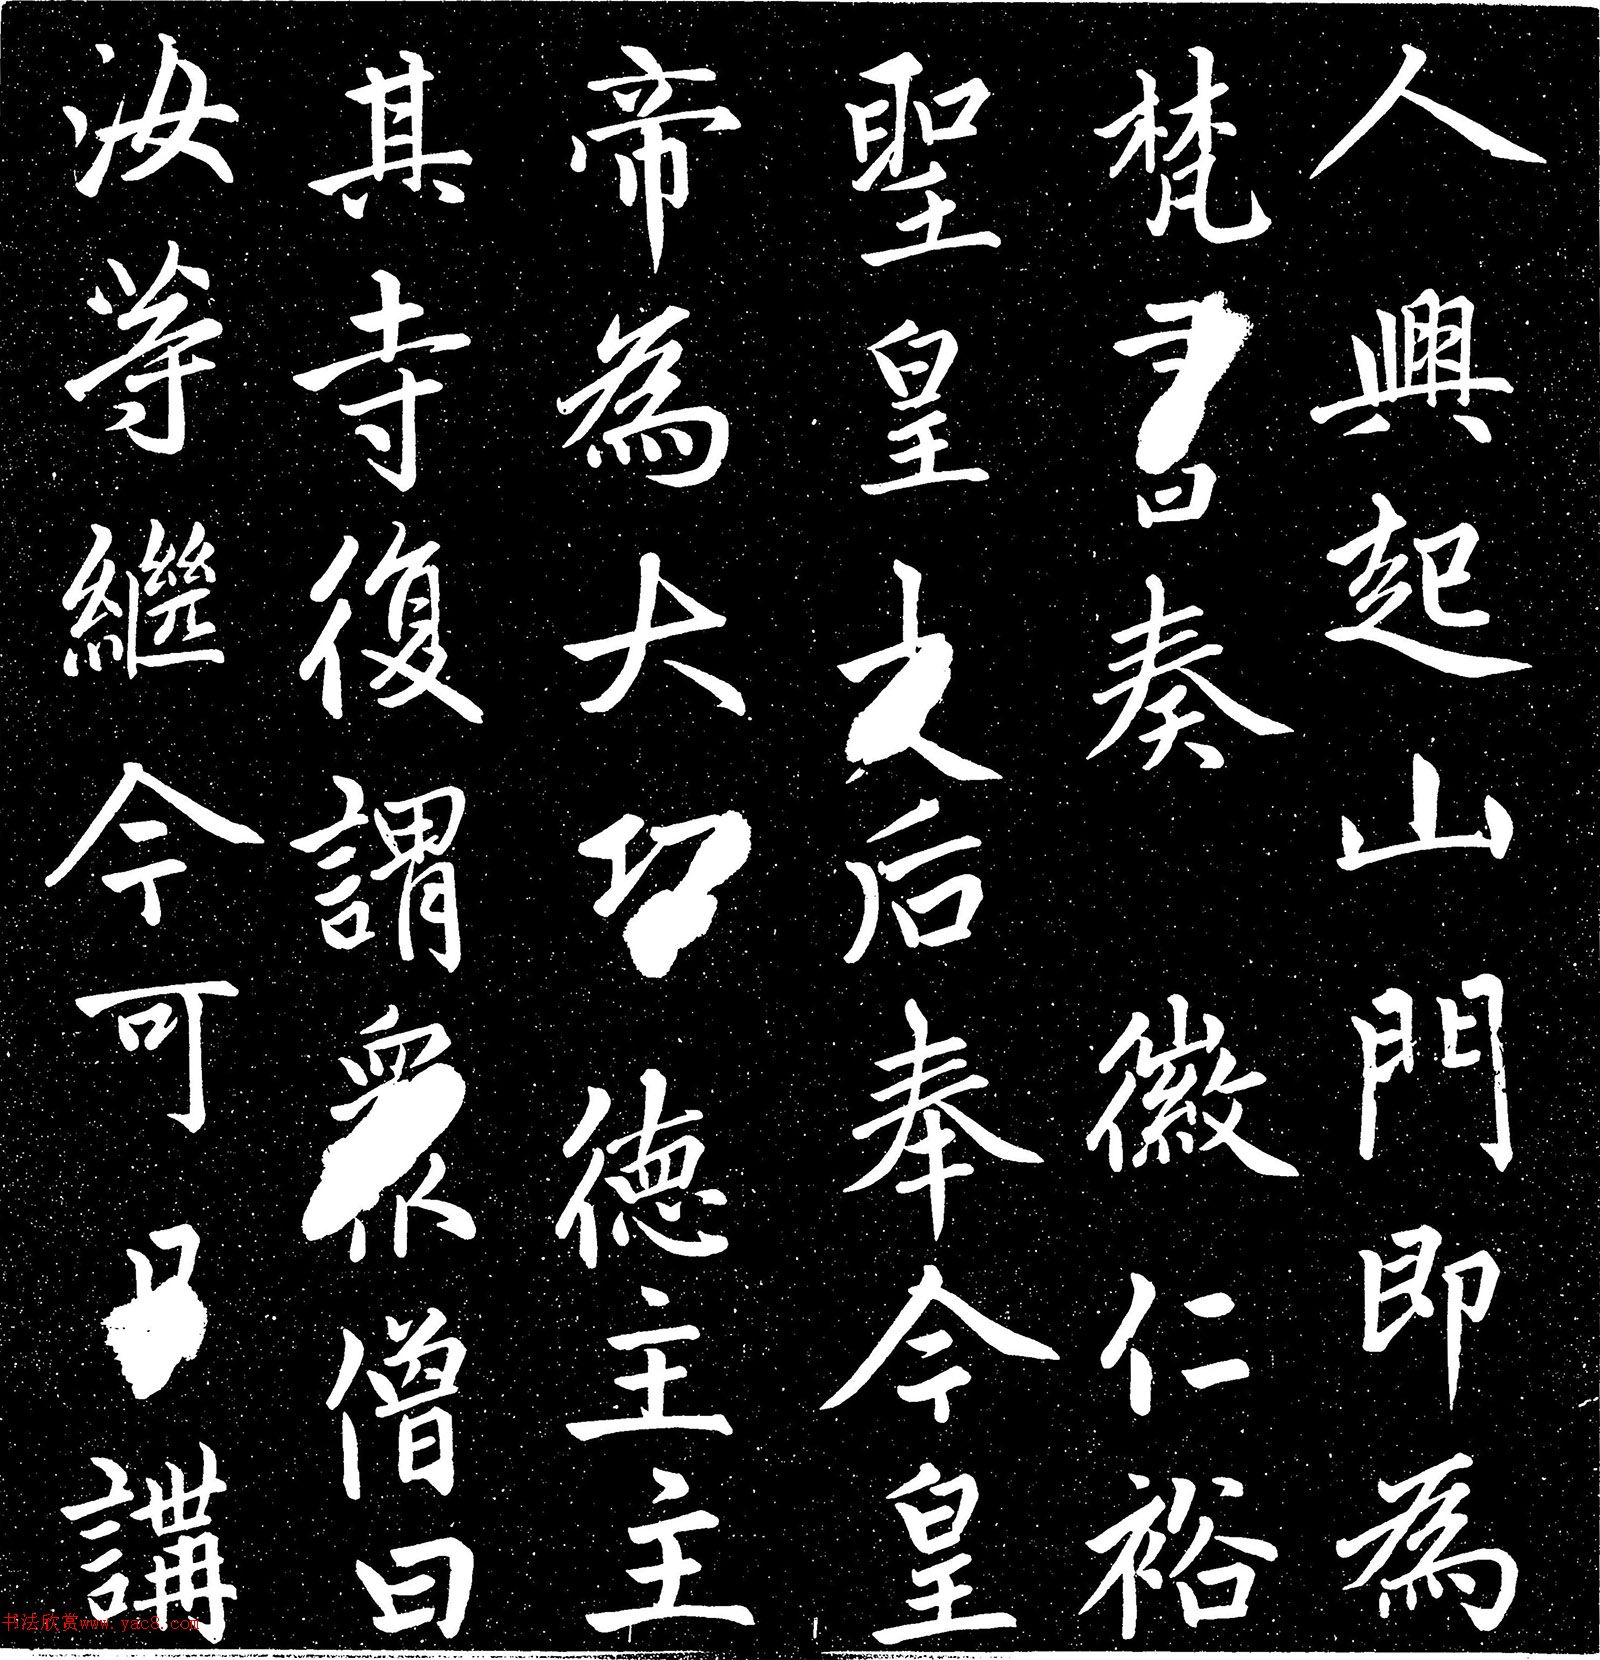 人興起山門即為
梵書奏 徽仁裕
聖皇太后奉今皇
帝為大功德主主
其寺復謂眾僧曰
汝等繼今可日講
书法欣赏www.yac8.com